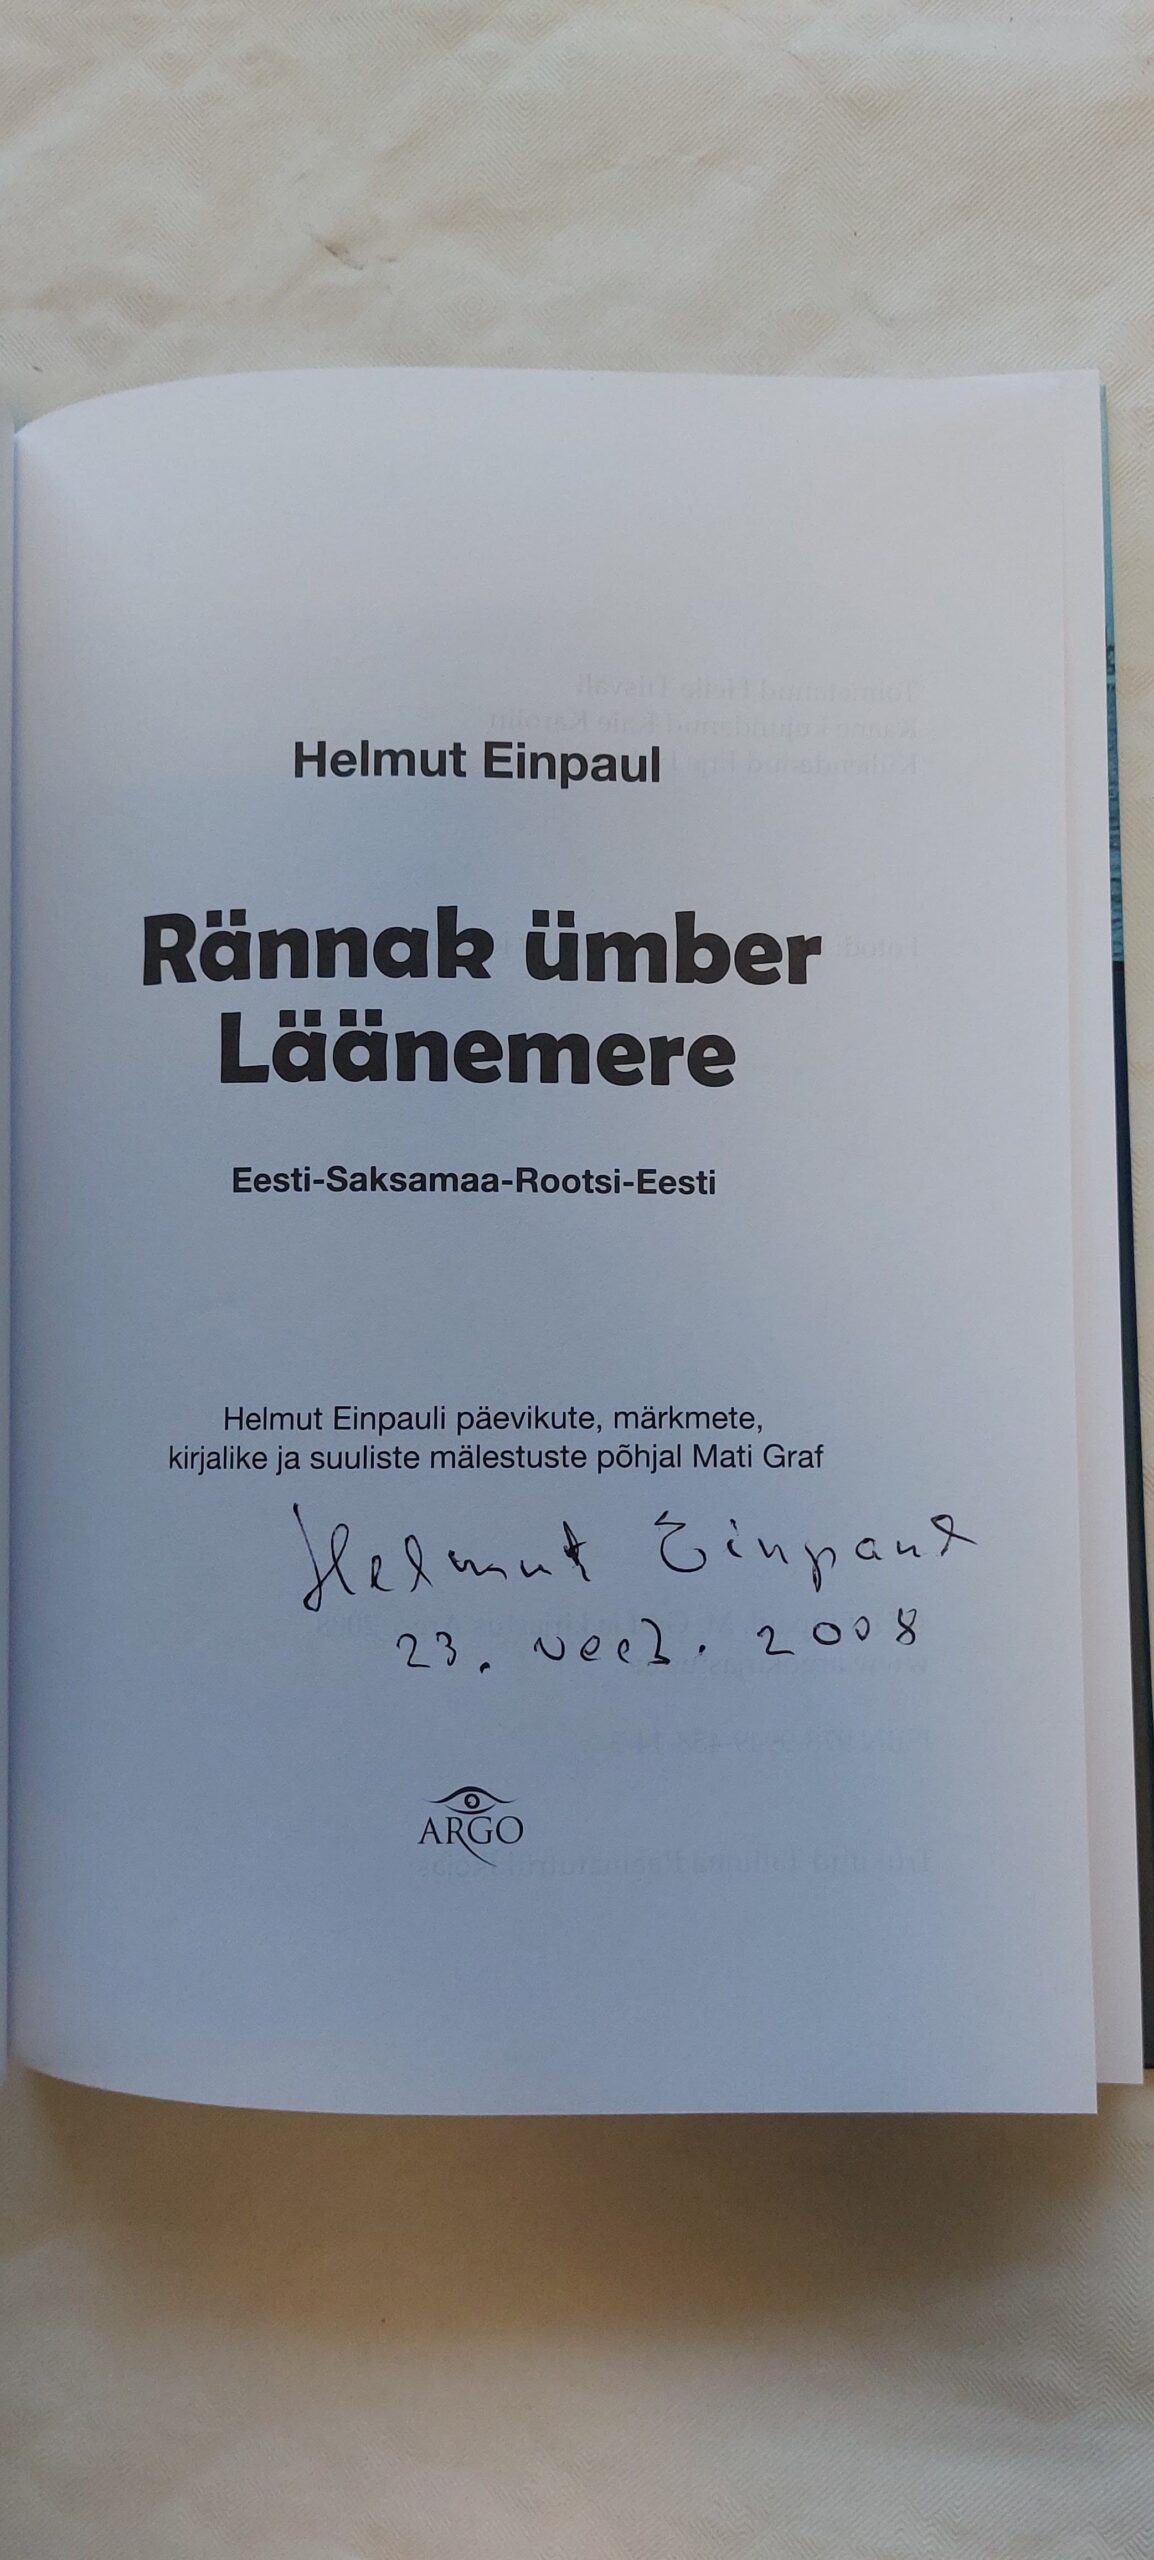 Helmut Einpaul
Rännak ümber
Läänemere
Eesti-Saksamaa-Rootsi-Eesti
Helmut Einpauli päevikute, märkmete,
kirjalike ja suuliste mälestuste põhjal Mati Graf
Helmut Einpaul
23. veeb. 2008
ARGO